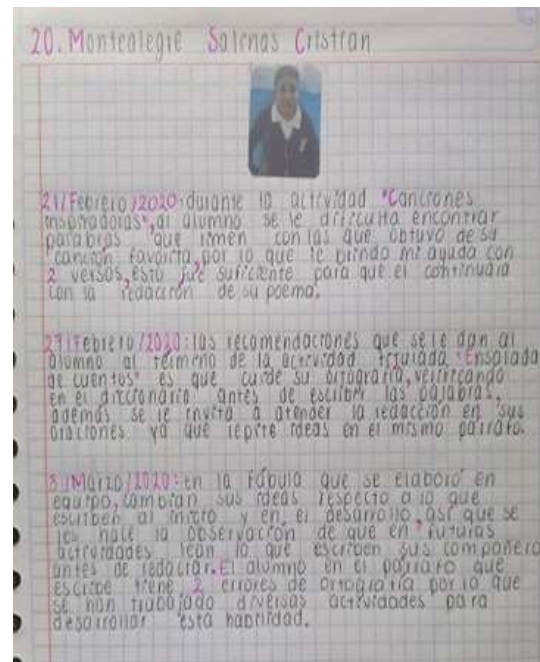 20. Montealegre Salinas Cristian
21/Febrero/2020: durante la actividad "Canciones
inspiradoras", al alumno se le dificulta encontrar
palabras que rimen con las que obtuvo de su
canción favorita, por lo que le brindo mi ayuda con
2 versos, esto fue suficiente para que el continuara
con la redacción de su poema.
27/Febrero/2020: las recomendaciones que se le dan al
alumno al término de la actividad titulada "Ensalada
de cuentos" es que cuide su ortografía, verificando
en el diccionario antes de escribir las palabras,
además se le invita a atender la redacción en sus
oraciones ya que repite ideas en el mismo párrafo.
5/Marzo/2020: en la fábula que se elaboró en
equipo, cambian sus ideas respecto a lo que
escriben al inicio y en el desarrollo, así que se
les hace la observación de que en futuras
actividades lean lo que escriben sus compañero
antes de redactar. El alumno en el párrafo que
escribe tiene 2 errores de ortografía por lo que
se han trabajado diversas actividades para
desarrollar esta habilidad.